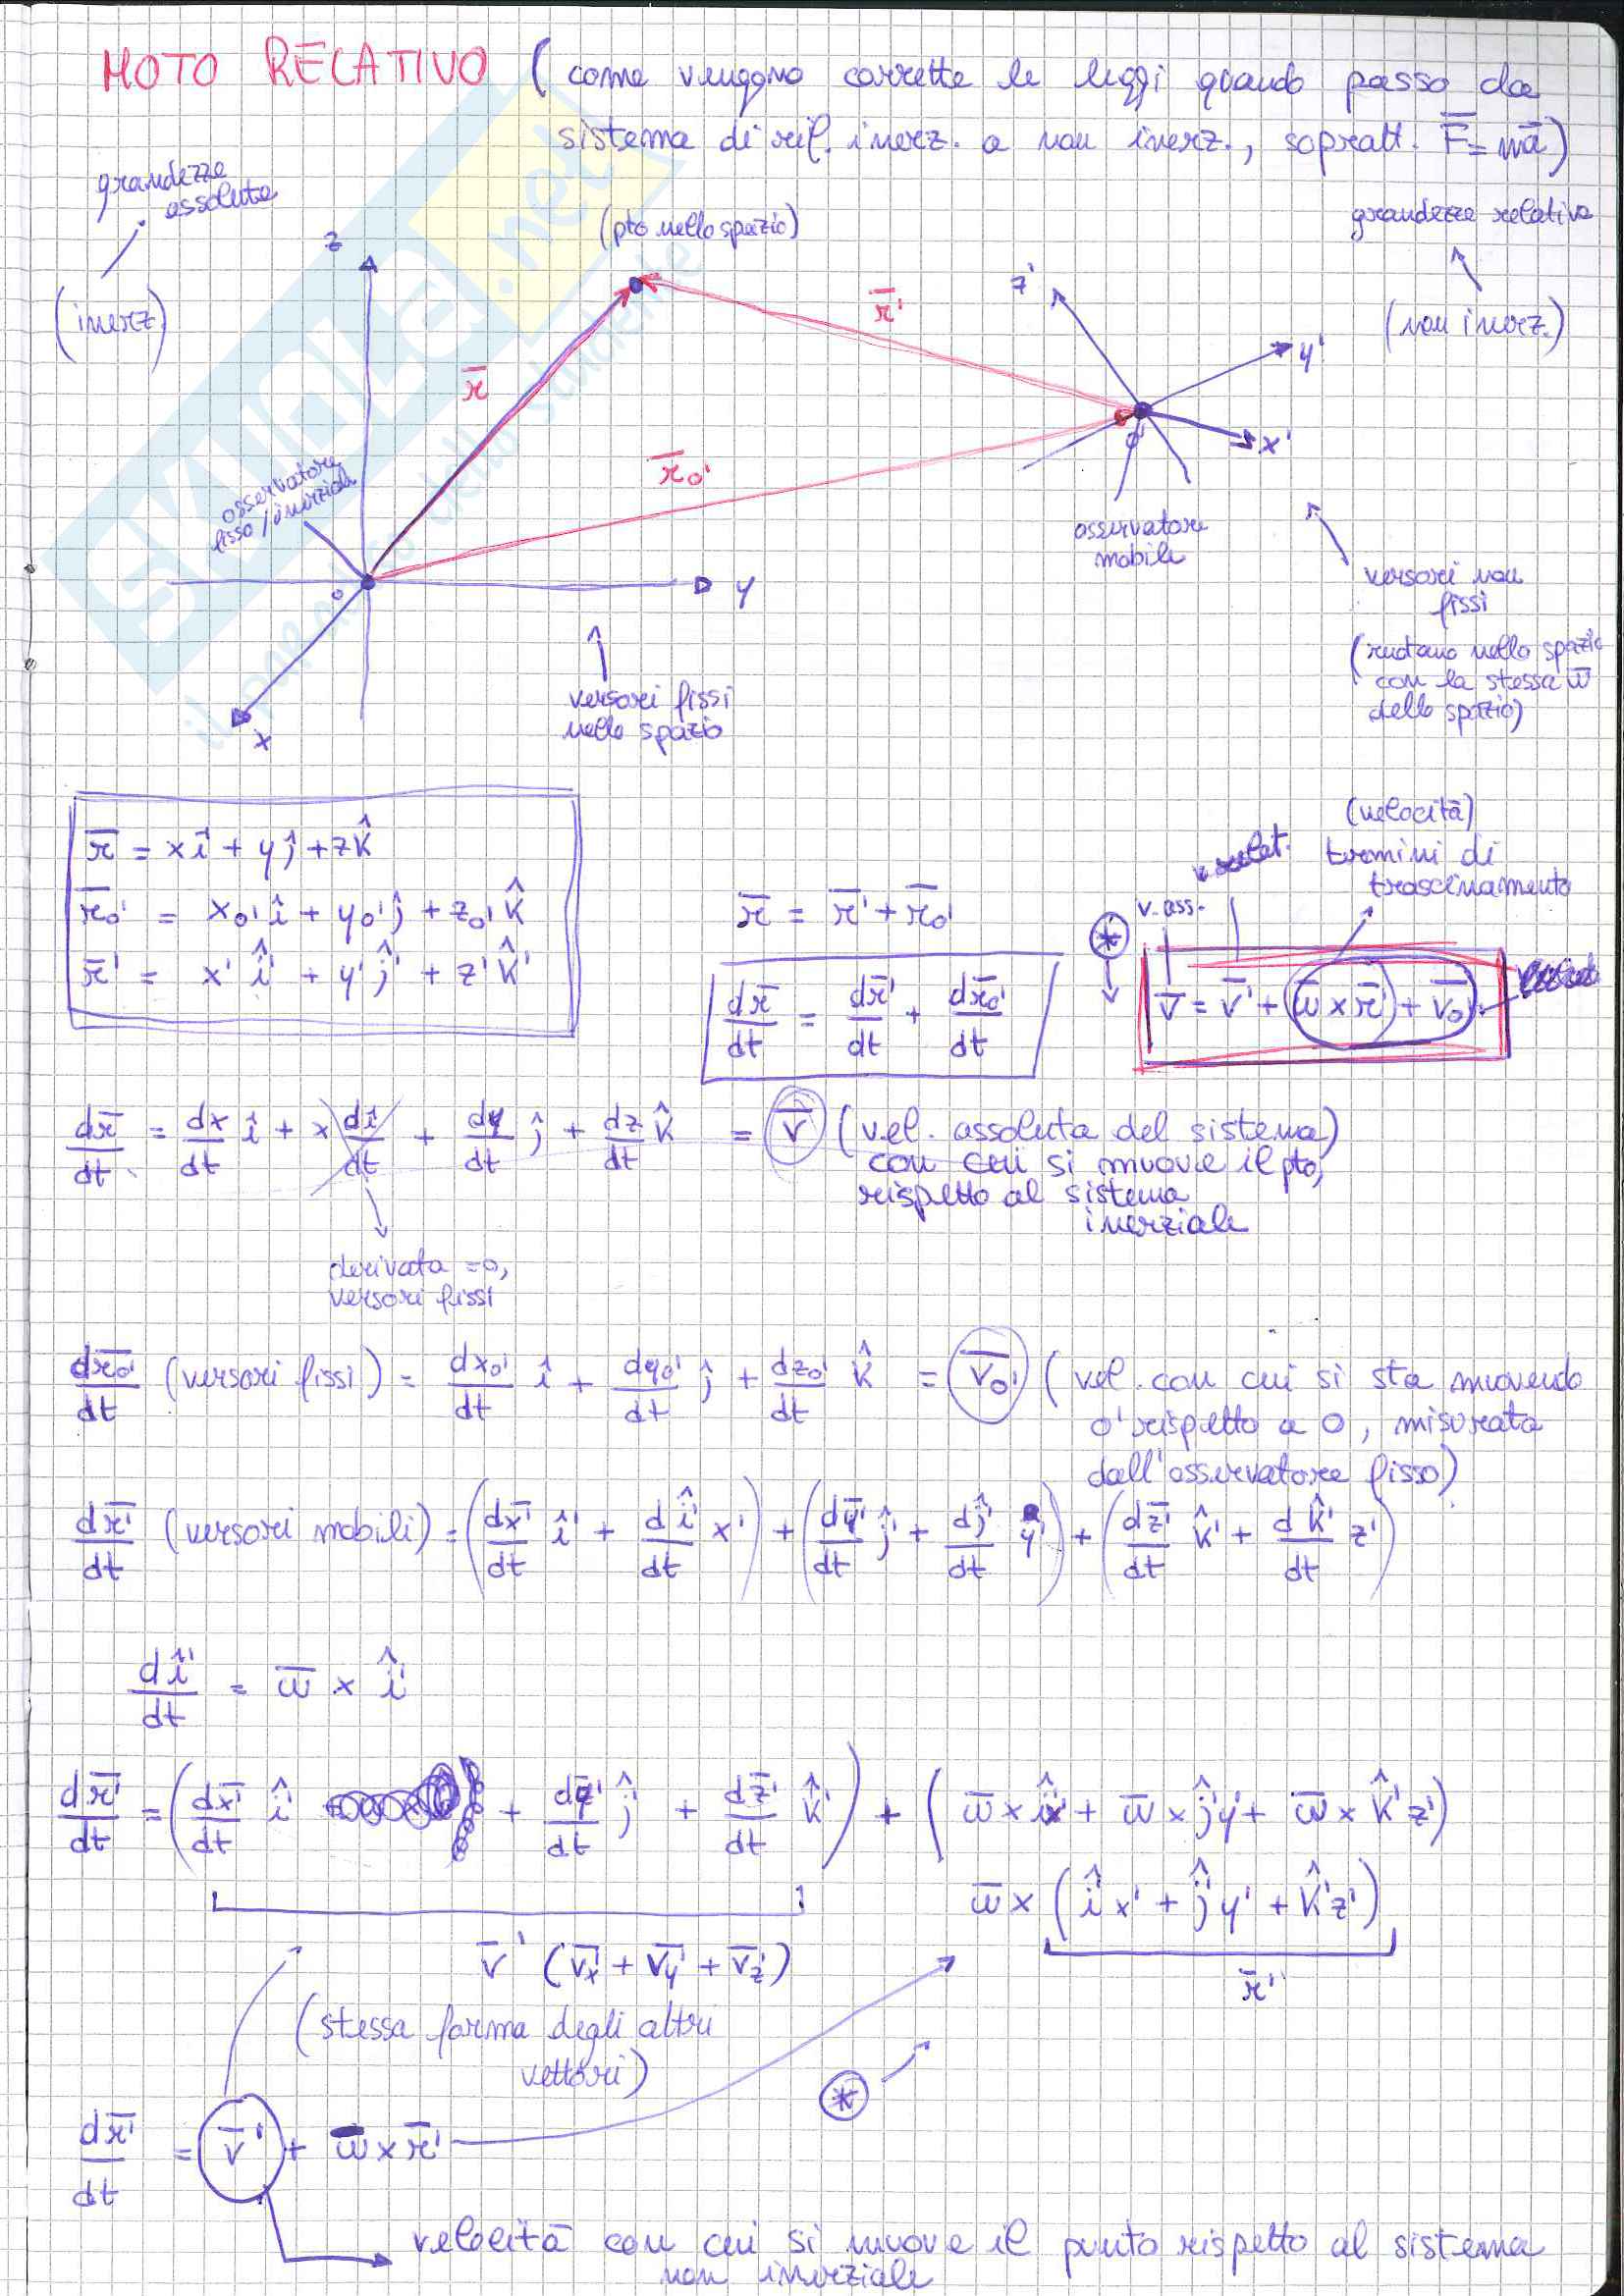 MOTO RELATIVO (come vengono corrette le leggi quando passo da
sistema di rif. inerz. a non inerz., sopratt. F̅=ma̅)
grandezze
assolute
(inerz)
(pto nello spazio)
grandezze relative
(non inerz.)
z
r̅
r̅'
r̅₀'
z'
y'
x'
o'
osservatore
fisso/inerziale
o
y
x
osservatore
mobile
versori fissi
nello spazio
versori non
fissi
(ruotano nello spazio
con la stessa ω̅
dello spazio)
r̅ = xî + yĵ + zk̂
r̅₀' = x₀'î + y₀'ĵ + z₀'k̂
r̅' = x'î' + y'ĵ' + z'k̂'
r̅ = r̅' + r̅₀'
dr̅/dt = dr̅'/dt + dr̅₀'/dt
(velocità)
termini di
trascinamento
v. ass.
*
v̅ = v̅' + (ω̅ × r̅') + v̅₀'
dr̅/dt = dx/dt î + x dî/dt + dy/dt ĵ + dz/dt k̂ = v̅ (vel. assoluta del sistema)
con cui si muove il pto,
rispetto al sistema
inerziale
derivata =0,
versori fissi
dr̅₀'/dt (versori fissi) = dx₀'/dt î + dy₀'/dt ĵ + dz₀'/dt k̂ = v̅₀' (vel. con cui si sta muovendo
o' rispetto a o, misurata
dall'osservatore fisso)
dr̅'/dt (versori mobili) = (dx̅'/dt î' + dî'/dt x') + (dy̅'/dt ĵ' + dĵ'/dt y') + (dz̅'/dt k̂' + dk̂'/dt z')
dî'/dt = ω̅ × î'
dr̅'/dt = (dx̅'/dt î' + dy̅'/dt ĵ' + dz̅'/dt k̂') + (ω̅ × î'x' + ω̅ × ĵ'y' + ω̅ × k̂'z')
ω̅ × (î'x' + ĵ'y' + k̂'z')
v̅' (v̅x' + v̅y' + v̅z')
r̅'
(stessa forma degli altri
vettori)
*
dr̅'/dt = v̅' + ω̅ × r̅'
velocità con cui si muove il punto rispetto al sistema
non inerziale
SKUOLA.net